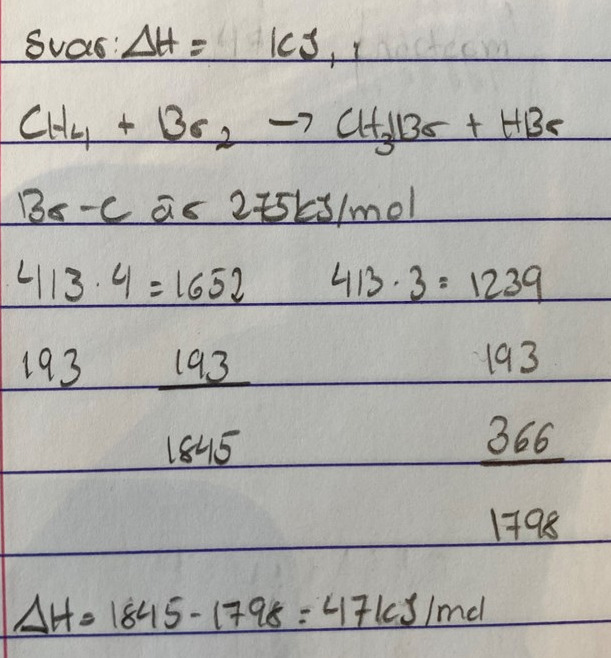 Svar: ΔH = kJ,
CH4 + Br2 → CH3Br + HBr
Br-C är 275kJ/mol
413·4 = 1652 413·3 = 1239
193 193 193
1845 366
1798
ΔH = 1845 - 1798 = 47kJ/mol